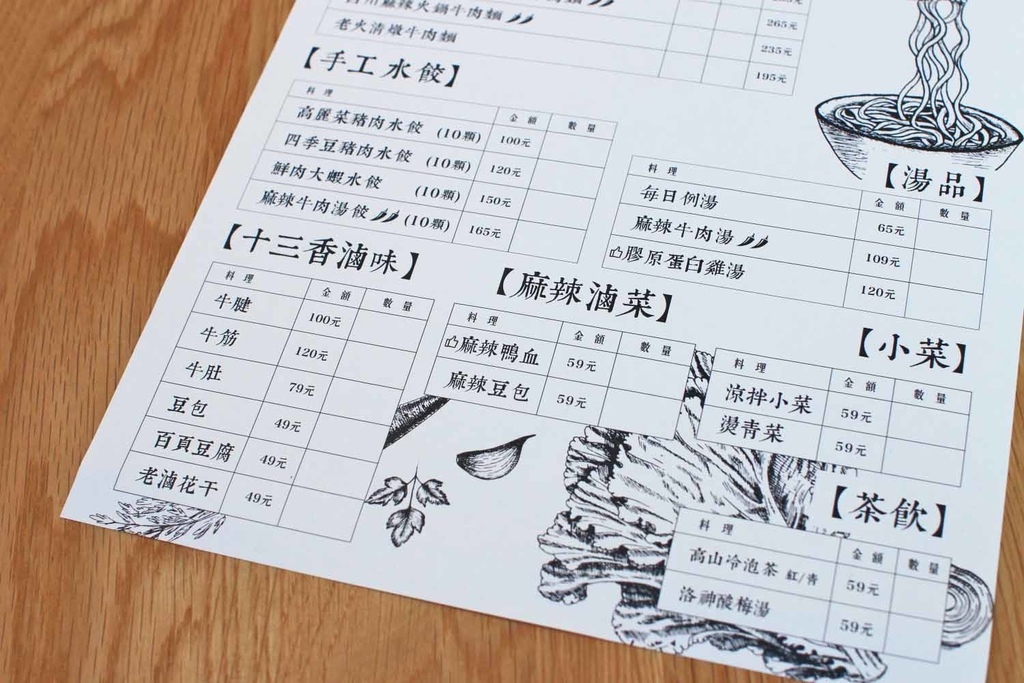 麻辣火鍋牛肉麵 265元
老火清燉牛肉麵 235元
195元
【手工水餃】
料理 金額 數量
高麗菜豬肉水餃 (10顆) 100元
四季豆豬肉水餃 (10顆) 120元
鮮肉大蝦水餃 (10顆) 150元
麻辣牛肉湯餃 (10顆) 165元
【湯品】
料理 金額 數量
每日例湯 65元
麻辣牛肉湯 109元
膠原蛋白雞湯 120元
【十三香滷味】
料理 金額 數量
牛腱 100元
牛筋 120元
牛肚 79元
豆包 49元
百頁豆腐 49元
老滷花干 49元
【麻辣滷菜】
料理 金額 數量
麻辣鴨血 59元
麻辣豆包 59元
【小菜】
料理 金額 數量
涼拌小菜 59元
燙青菜 59元
【茶飲】
料理 金額 數量
高山冷泡茶 紅/青 59元
洛神酸梅湯 59元